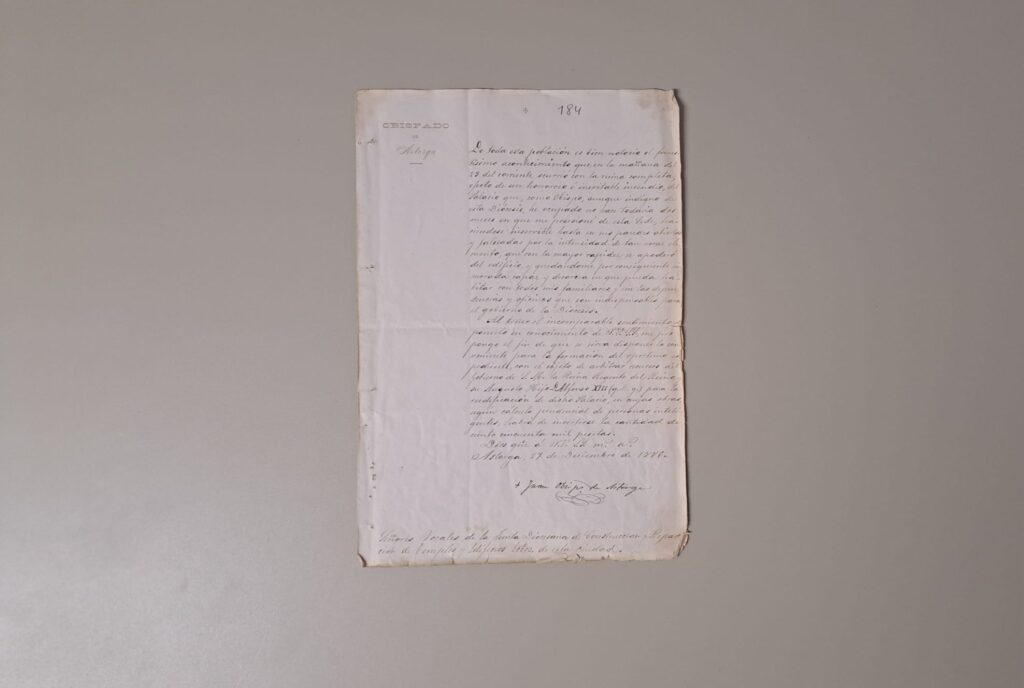 184
OBISPADO
DE
Astorga
De toda esta población es bien notorio el funes
tísimo acontecimiento que, en la mañana del
23 del corriente ocurrió con la ruina completa,
efecto de un horroroso é inevitable incendio, del
Palacio que, como Obispo, aunque indigno de
esta Diócesis, he ocupado no hace todavía dos
meses en que me posesioné de esta Sede,
inservible hasta en sus paredes abiertas
y por la intensidad de tan voraz ele
mento, que con la mayor rapidez se apoderó
del edificio, y quedándome por consiguiente sin
morada capaz y decorosa en que pueda ha
bitar con todos mis familiares y sin las depen
dencias y oficinas que son indispensables para
el gobierno de la Diócesis.
Al tener el incomparable sentimiento
ponerlo en conocimiento de me pro
pongo el fin de que se sirva disponer lo con
veniente para la formación del oportuno ex
pediente, con el objeto de arbitrar recursos del
Gobierno de S. M. la Reina Regente del Reino
su Augusto Hijo D. Alfonso XIII (q. D. g.) para la
reedificación de dicho Palacio, en cuyas obras,
según cálculo prudencial de personas inteli
gentes, habrá de invertirse la cantidad de
ciento cincuenta mil pesetas.
Dios gue. á m.s a.s
Astorga, 27 de Diciembre de 1886.
+ Juan Obispo de Astorga
Señores Vocales de la Junta Diocesana de Construcción y Repa
ración de Templos y Edificios de esta ciudad.